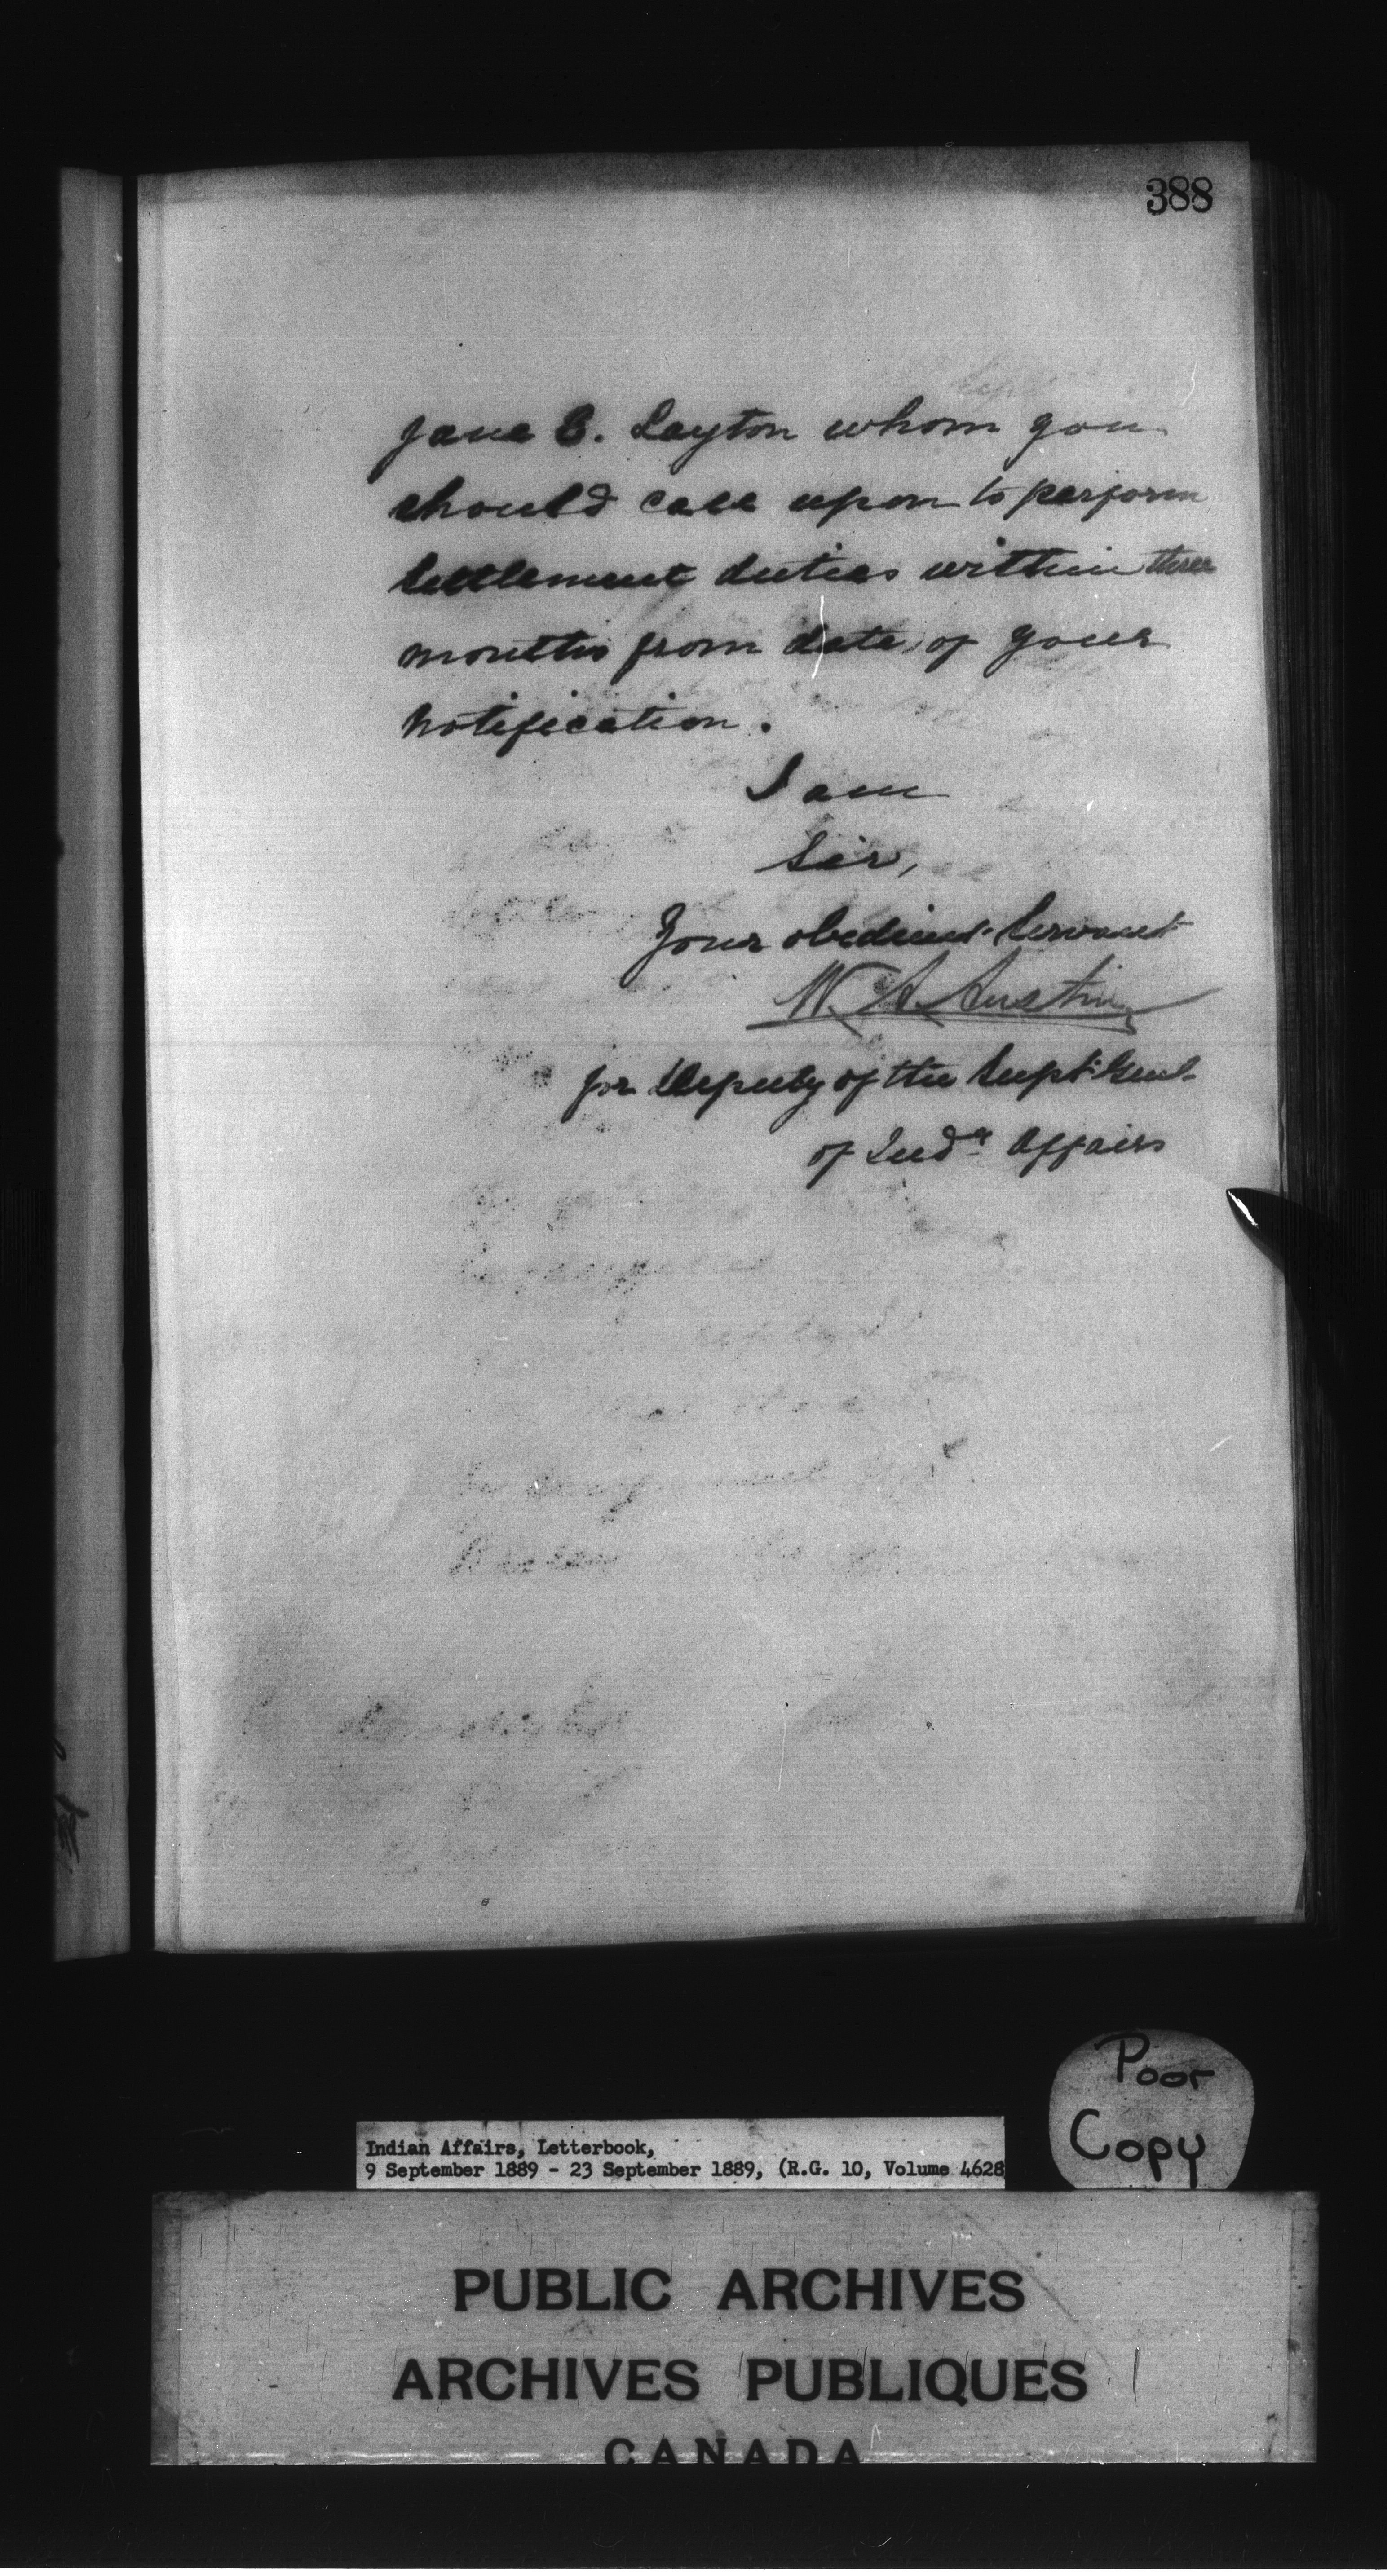 388
Jane E. Layton whom you
should call upon to perform
settlement duties within three
months from date of your
notification.
I am
Sir,
Your obedient Servant
W. A. Austin
for Deputy of the Supt. Genl.
of Indn Affairs
Poor
Copy
Indian Affairs, Letterbook,
9 September 1889 - 23 September 1889, (R.G. 10, Volume 4628
PUBLIC ARCHIVES
ARCHIVES PUBLIQUES
CANADA